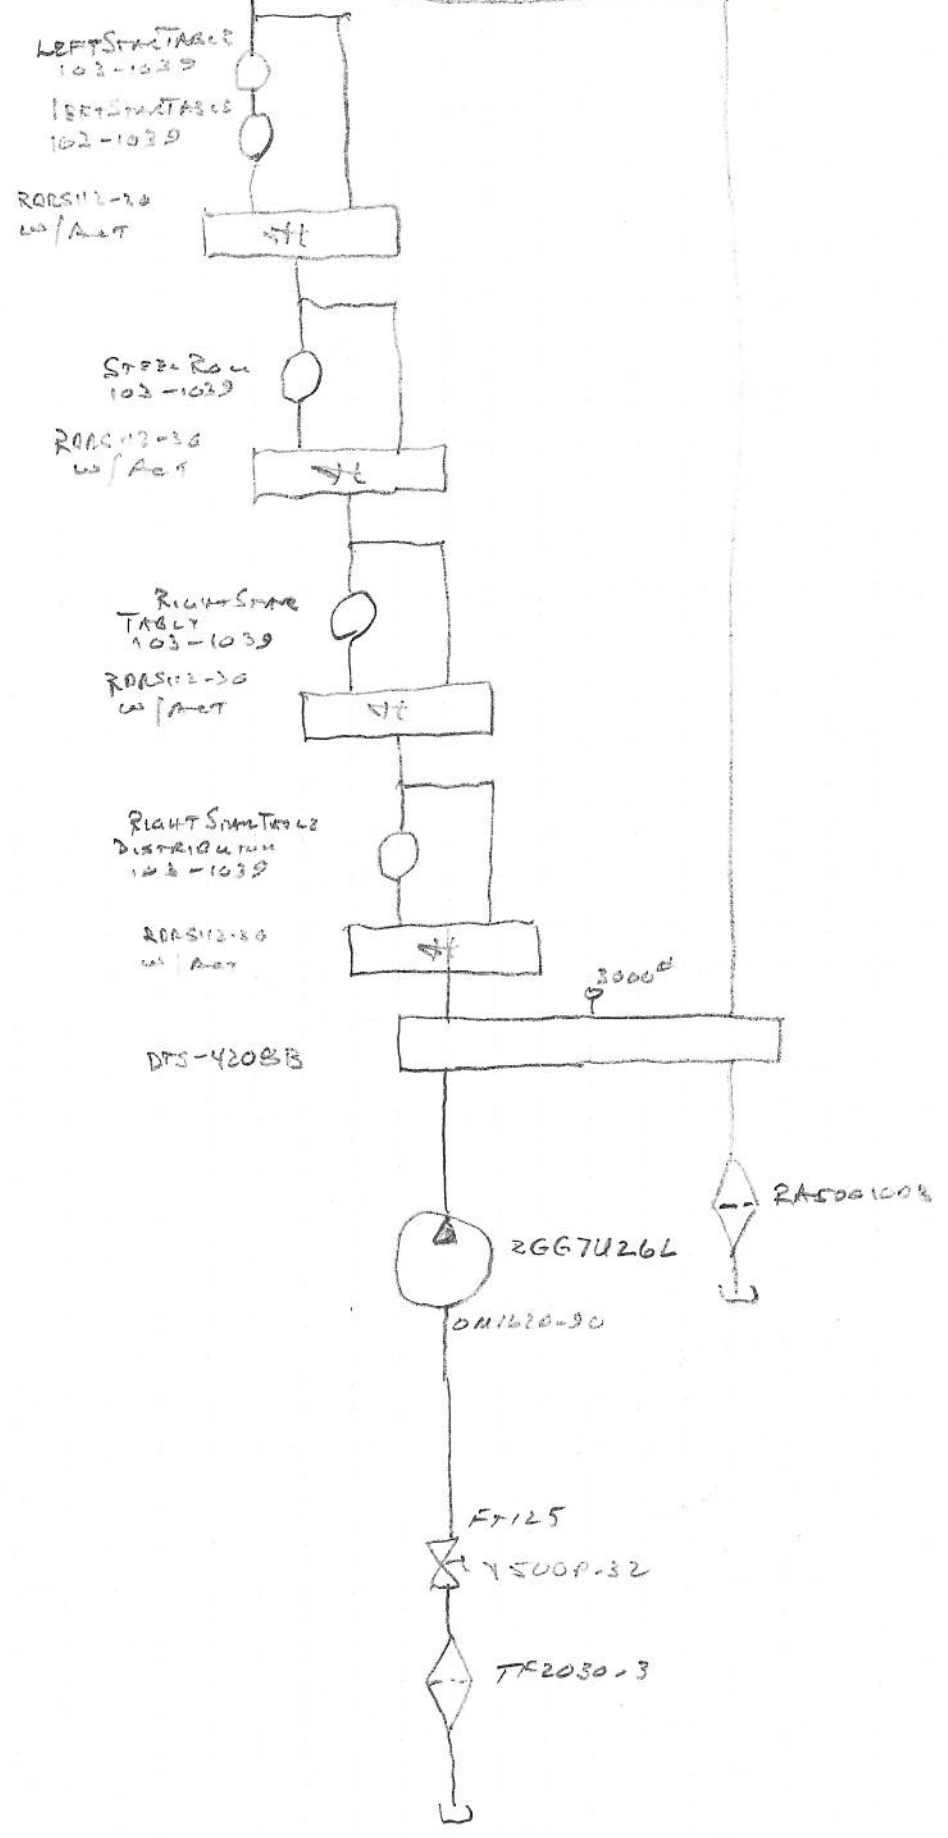 LEFT STAR TABLE
103-1039
LEFT STAR TABLE
103-1039
RDRS112-30
w/ACT
STEEL ROLL
103-1039
RDRS112-30
w/ACT
RIGHT STAR
TABLE
103-1039
RDRS112-30
w/ACT
RIGHT STAR TABLE
DISTRIBUTION
103-1039
RDRS112-30
w/ACT
3000#
DTS-4208B
RA5001003
2GG7U26L
OM1620-90
FT125
Y500P-32
TF2030-3